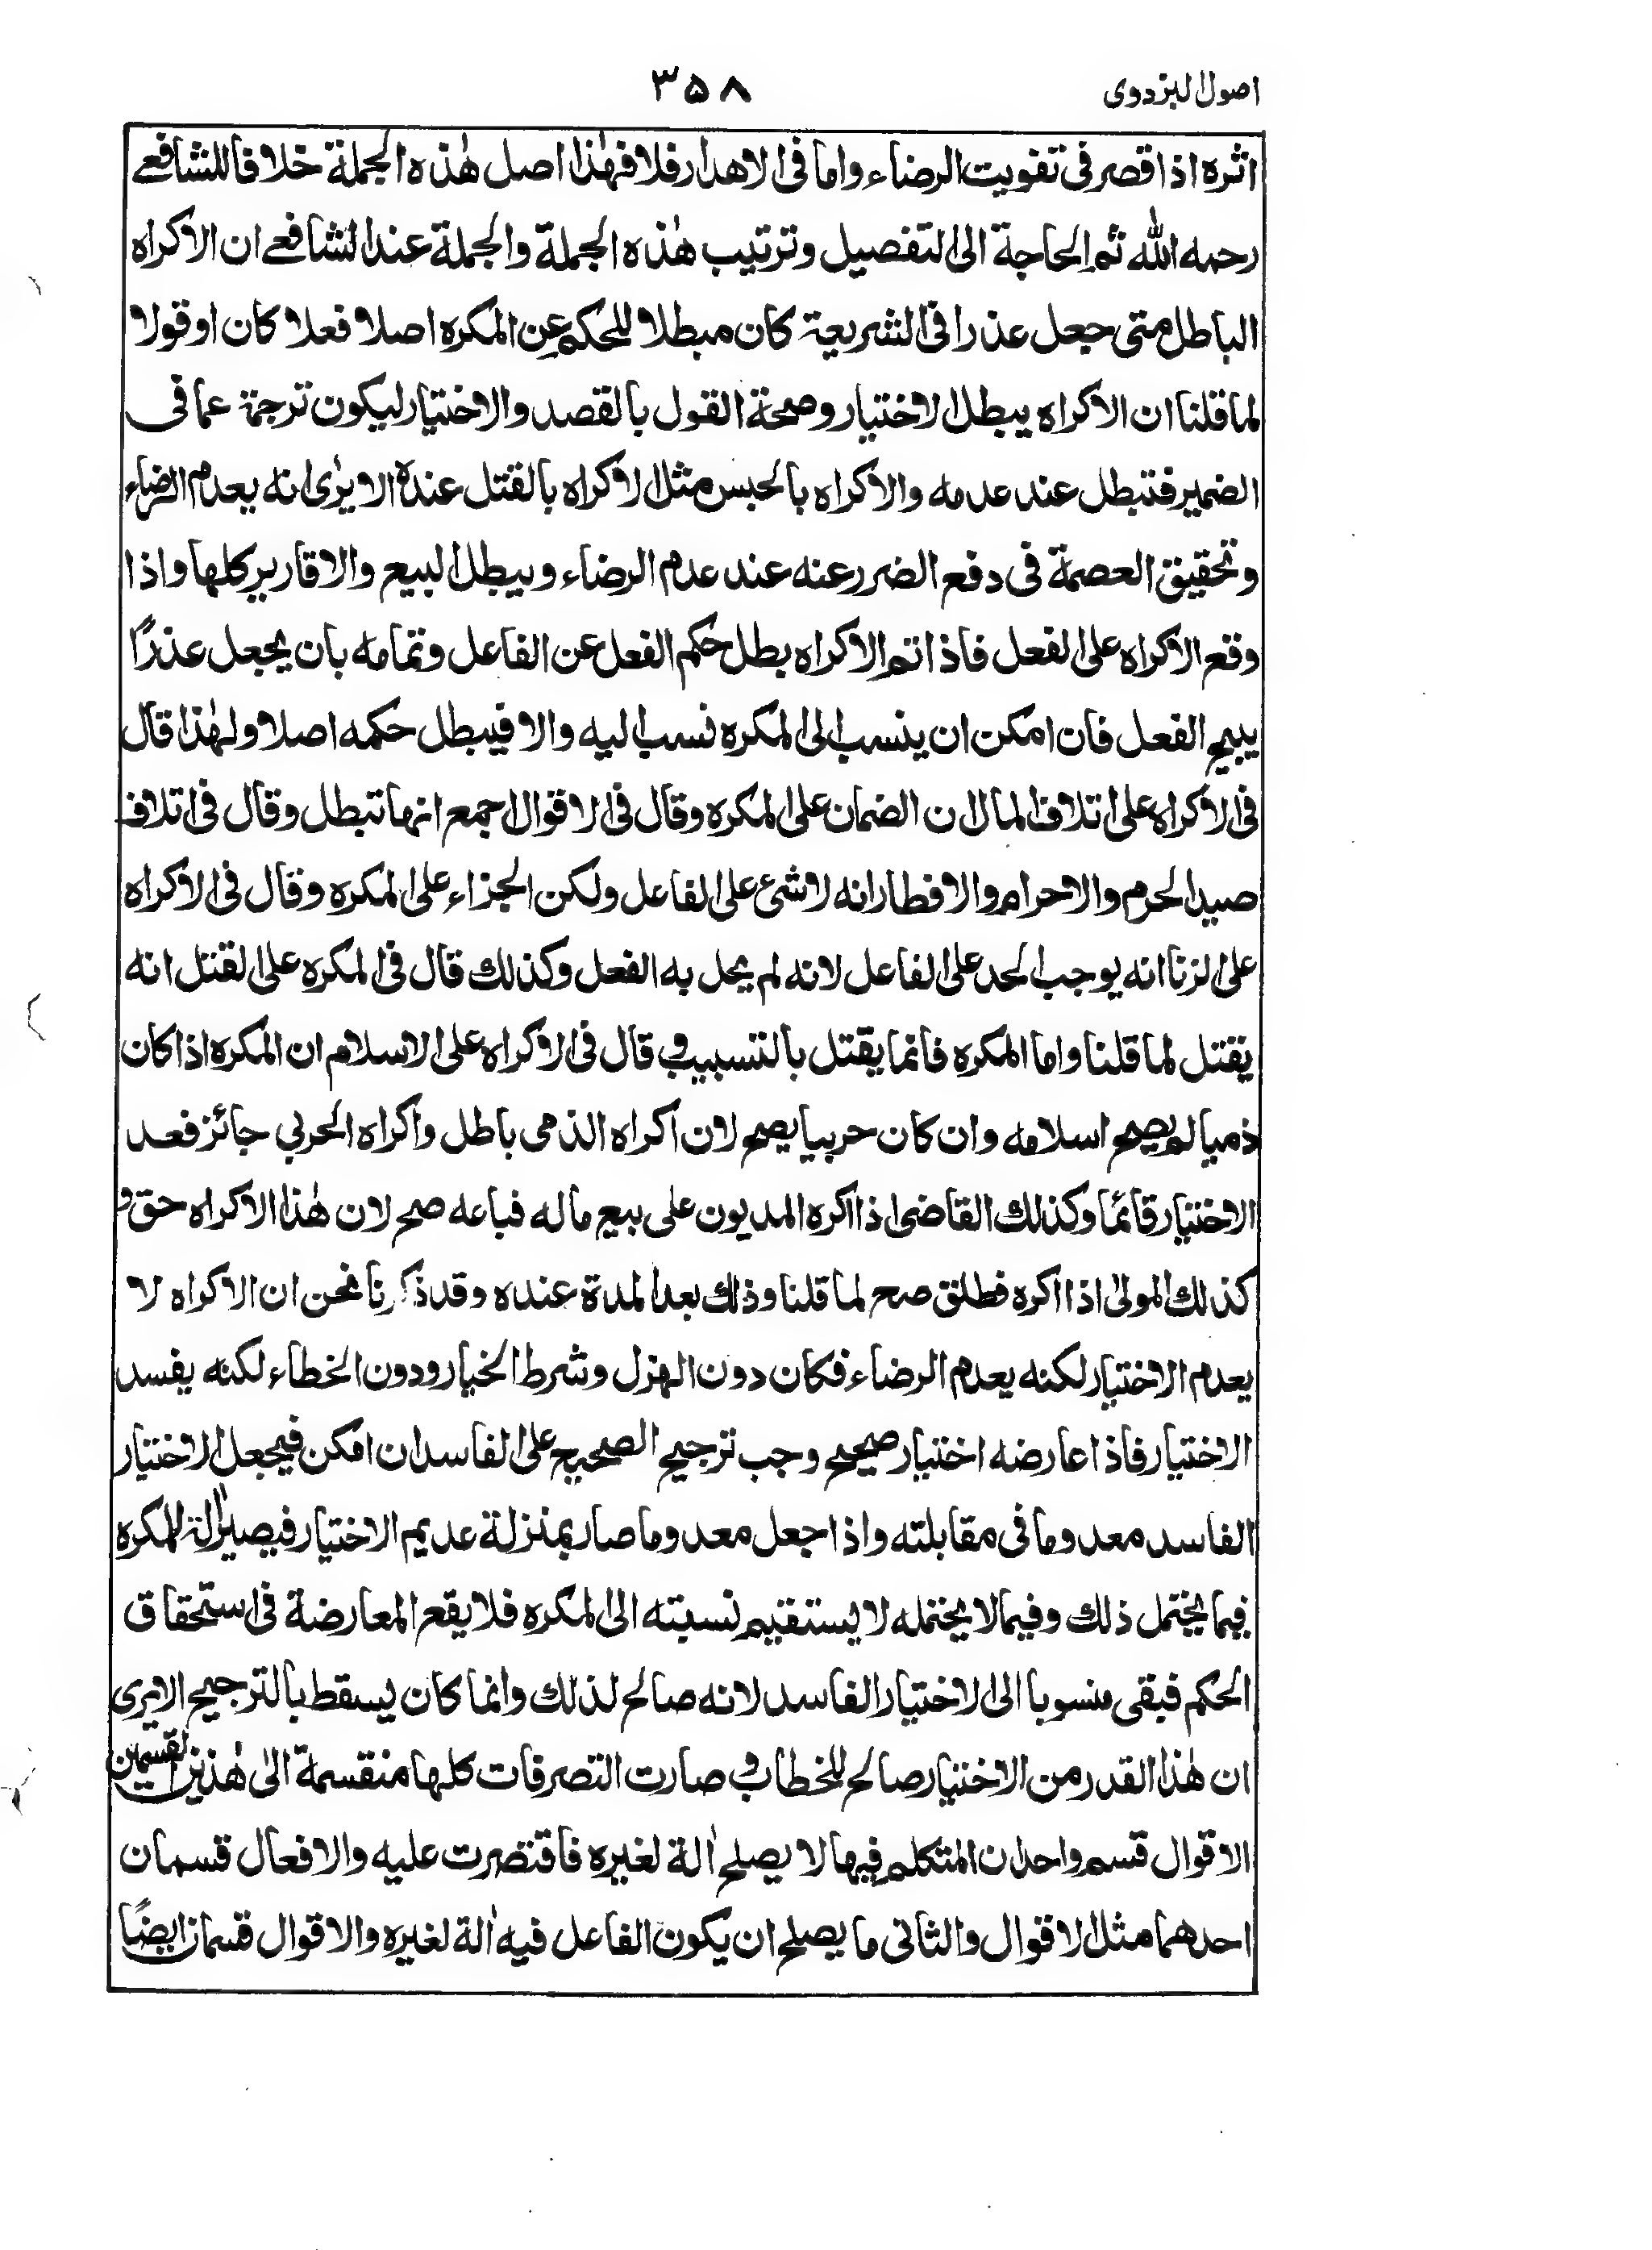 اصول البزدوى
٣٥٨
اثره اذا قصر فى تفويت الرضاء واما فى الاهدار فلا فهٰذا اصل هٰذه الجملة خلافا للشافعے
رحمه الله ثم الحاجة الى التفصيل وترتيب هٰذه الجملة والجملة عند الشافعے ان الاكراه
الباطل متى جعل عذرا فى الشريعة كان مبطلا للحكم عن المكره اصلا فعلا كان او قولا
لما قلنا ان الاكراه يبطل الاختيار وصحة القول بالقصد والاختيار ليكون ترجمة عما فى
الضمير فتبطل عند عدمه والاكراه بالحبس مثل الاكراه بالقتل عنده الا يرٰى انه يعدم الرضاء
وتحقيق العصمة فى دفع الضرر عنه عند عدم الرضاء ويبطل البيع والاقارير كلها واذا
وقع الاكراه على الفعل فاذا تم الاكراه بطل حكم الفعل عن الفاعل وتمامه بان يجعل عذرًا
يبيح الفعل فان امكن ان ينسب الى المكره نسب اليه والا فيبطل حكمه اصلا ولهٰذا قال
فى الاكراه على اتلاف المال ان الضمان على المكره وقال فى الاقوال اجمع انها تبطل وقال فى اتلاف
صيد الحرم والاحرام والافطار انه لا شئ على الفاعل ولكن الجزاء على المكره وقال فى الاكراه
على الزنا انه يوجب الحد على الفاعل لانه لم يحل به الفعل وكذلك قال فى المكره على القتل انه
يقتل لما قلنا واما المكره فانما يقتل بالتسبيب و قال فى الاكراه على الاسلام ان المكره اذا كان
ذميا لم يصح اسلامه وان كان حربيا يصح لان اكراه الذمى باطل واكراه الحربي جائز فعد
الاختيار قائما وكذلك القاضى اذا اكره المديون على بيع ماله فباعه صح لان هٰذا الاكراه حق و
كذلك المولىٰ اذا اكره فطلق صح لما قلنا وذلك بعد المدة عنده وقد ذكرنا نحن ان الاكراه لا
يعدم الاختيار لكنه يعدم الرضاء فكان دون الهزل وشرط الخيار ودون الخطاء لكنه يفسد
الاختيار فاذا عارضه اختيار صحيح وجب ترجيح الصحيح على الفاسد ان امكن فيجعل الاختيار
الفاسد معدوما فى مقابلته واذا جعل معدوما صار بمنزلة عديم الاختيار فيصير اٰلة للمكره
فيما يحتمل ذلك وفيما لا يحتمله لا يستقيم نسبته الى المكره فلا يقع المعارضة فى استحقاق
الحكم فبقى منسوبا الى الاختيار الفاسد لانه صالح لذلك وانما كان يسقط بالترجيح الا يرى
ان هٰذا القدر من الاختيار صالح للخطاب و صارت التصرفات كلها منقسمة الىٰ هٰذين القسمين
الاقوال قسم واحد ان المتكلم فيها لا يصلح اٰلة لغيره فاقتصرت عليه والافعال قسمان
احدهما مثل الاقوال والثانى ما يصلح ان يكون الفاعل فيه اٰلة لغيره والاقوال قسمان ايضًا